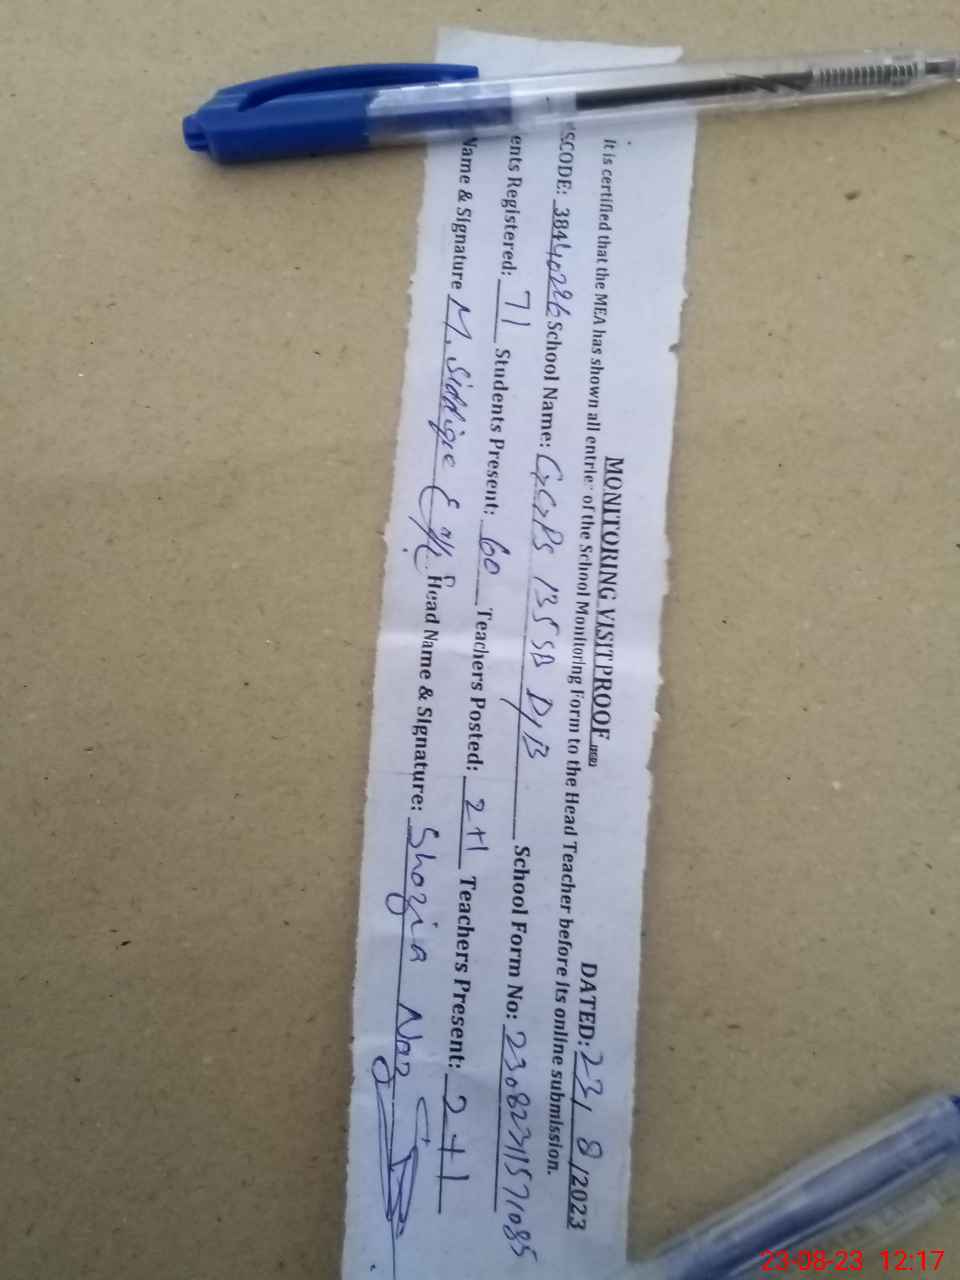 MONITORING VISIT PROOF
DATED: 23/8/2023
It is certified that the MEA has shown all entrie of the School Monitoring Form to the Head Teacher before its online submission.
SCODE: 38440226 School Name: GGPS 135 SB D/B School Form No: 230823115 71085
ents Registered: 71 Students Present: 60 Teachers Posted: 2+1 Teachers Present: 2+1
Name & Signature M. Siddique Head Name & Signature: Shazia Naz
23-08-23 12:17